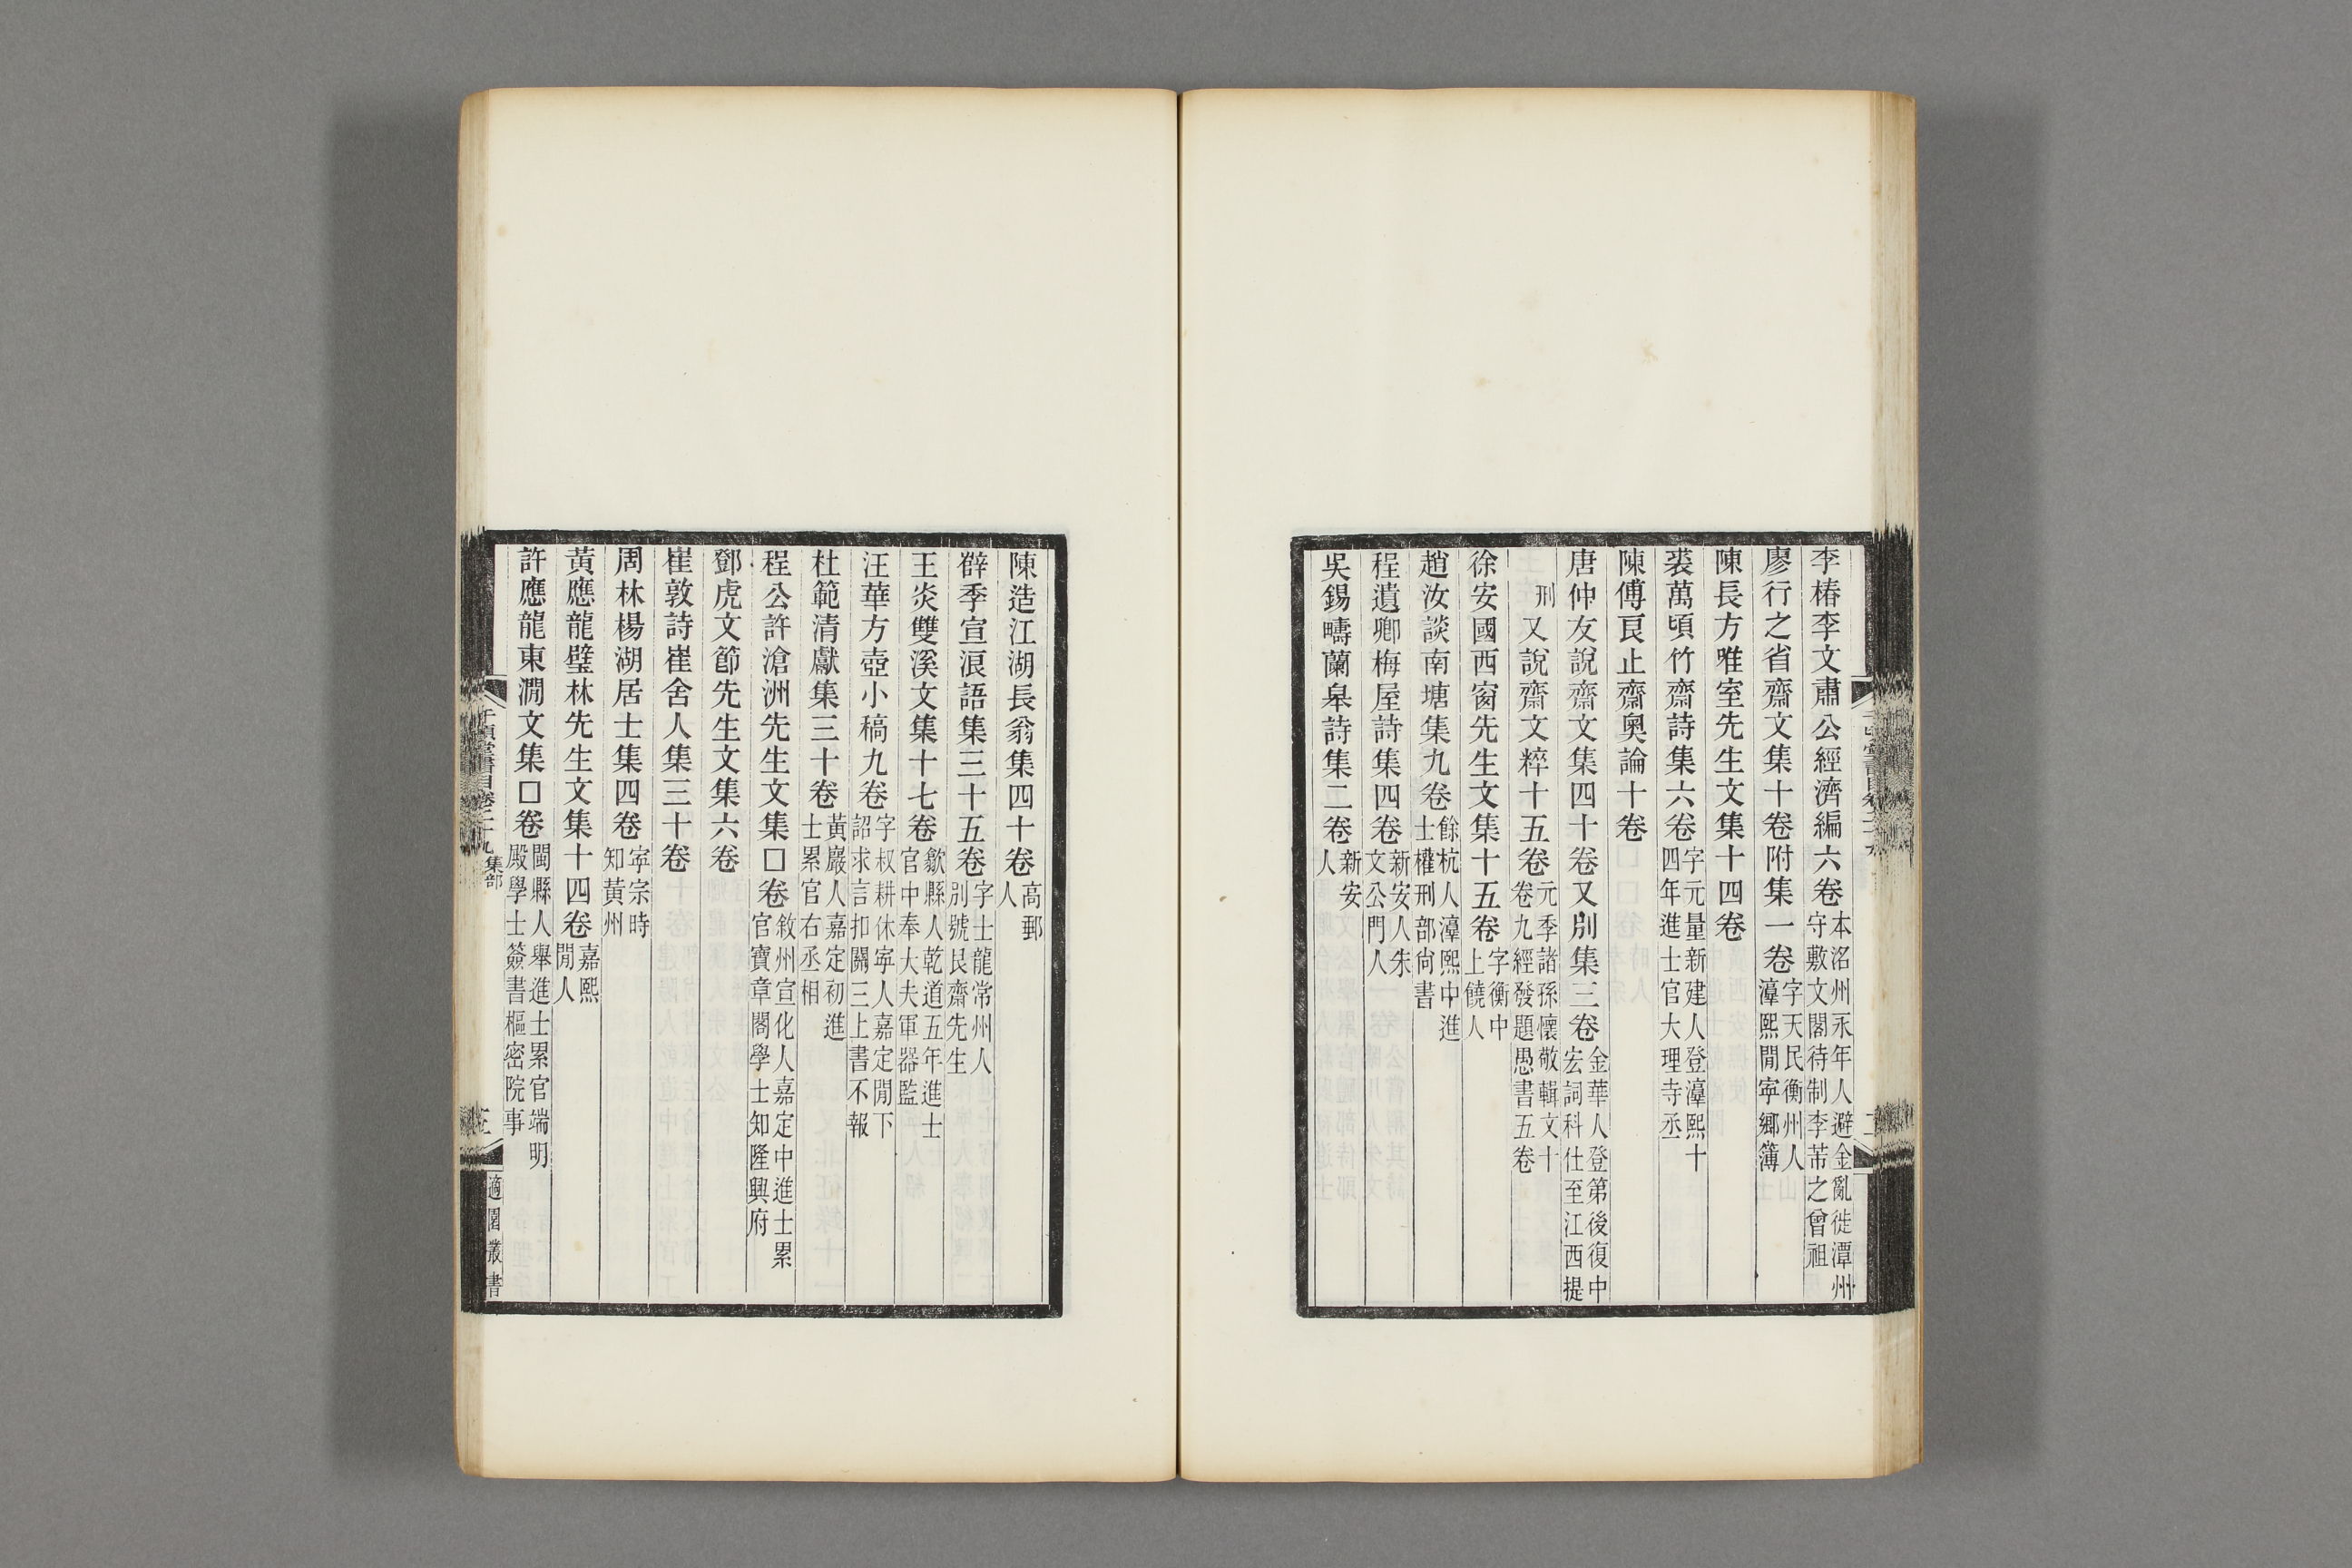 李椿李文肅公經濟編六卷本洺州永年人避金亂徙潭州守敷文閣待制李芾之曾祖
廖行之省齋文集十卷附集一卷字天民衡州人湻熙閒寧鄉簿
陳長方唯室先生文集十四卷
裘萬頃竹齋詩集六卷字元量新建人登湻熙十四年進士官大理寺丞
陳傅良止齋奧論十卷
唐仲友說齋文集四十卷又別集三卷金華人登第後復中宏詞科仕至江西提
刑又說齋文粹十五卷元季諸孫懷敬輯文十卷九經發題愚書五卷
徐安國西窗先生文集十五卷字衡中上饒人
趙汝談南塘集九卷餘杭人湻熙中進士權刑部尙書
程遺卿梅屋詩集四卷新安人朱文公門人
吳錫疇蘭皋詩集二卷新安人
陳造江湖長翁集四十卷高郵人
薛季宣浪語集三十五卷字士龍常州人別號艮齋先生
王炎雙溪文集十七卷歙縣人乾道五年進士官中奉大夫軍器監
汪華方壺小稿九卷字叔耕休寧人嘉定閒下詔求言扣關三上書不報
杜範清獻集三十卷黃巖人嘉定初進士累官右丞相
程公許滄洲先生文集□卷敘州宣化人嘉定中進士累官寶章閣學士知隆興府
鄧虎文節先生文集六卷
崔敦詩崔舍人集三十卷
周林楊湖居士集四卷寧宗時知黃州
黃應龍璧林先生文集十四卷嘉熙閒人
許應龍東澗文集□卷閩縣人舉進士累官端明殿學士簽書樞密院事
千頃堂書目卷二十九 集部
適園叢書